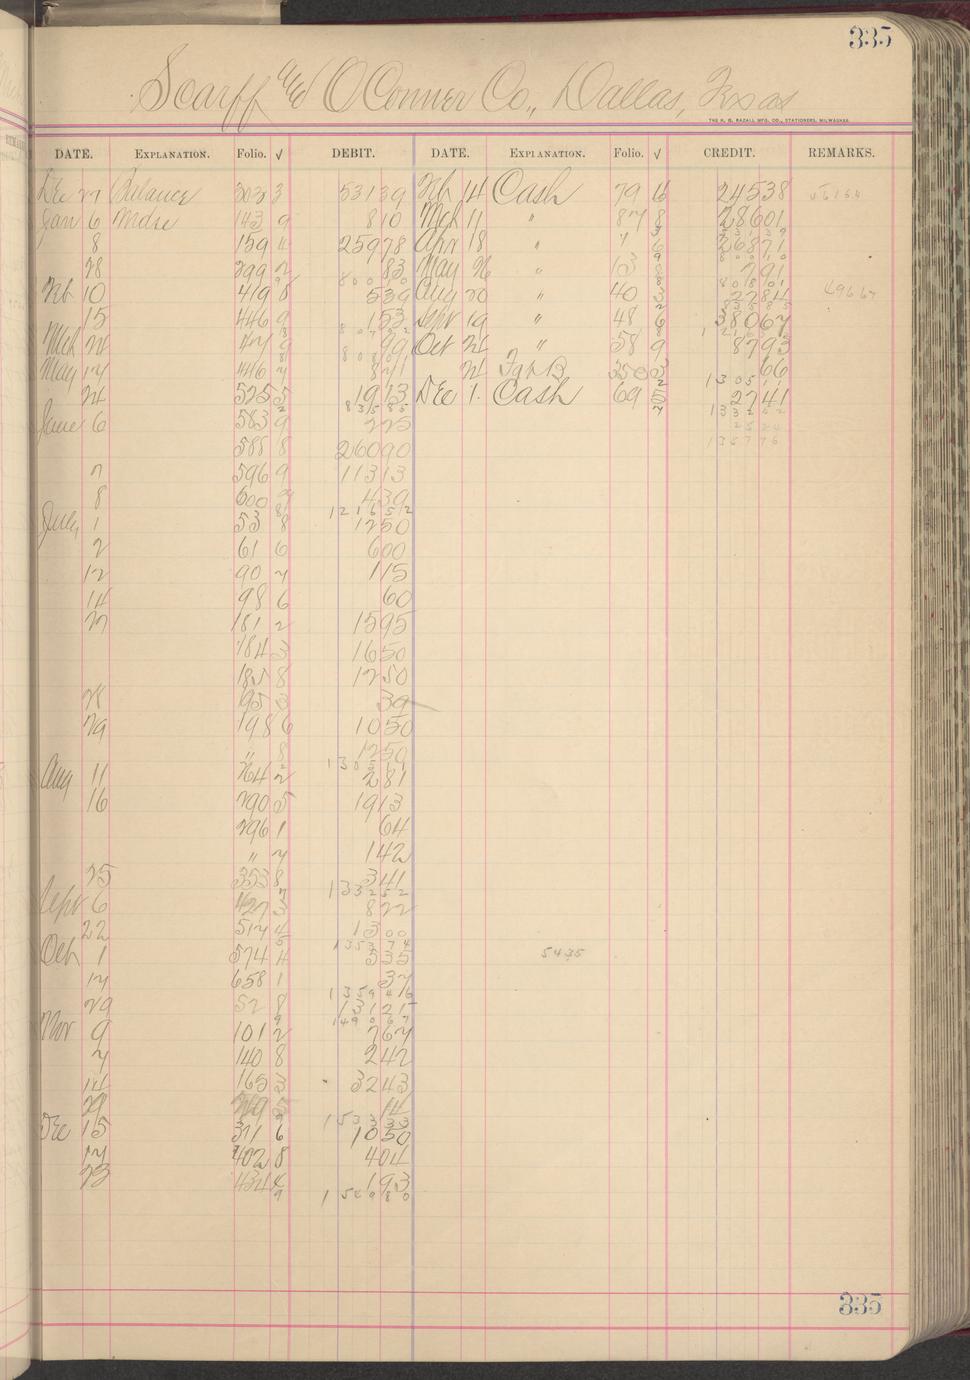 335
Scarff and OConner Co., Dallas, Texas
THE H. G. RAZALL MFG. CO., STATIONERS, MILWAUKEE
DATE. EXPLANATION. Folio. √ DEBIT. DATE. EXPLANATION. Folio. √ CREDIT. REMARKS.
Dec 27 Balance 303 3 531 39 Feb 14 Cash 79 6 245 38
Jan 6 Mdse 143 9 8 10 Mch 11 " 87 8 286 01
8 159 4 259 78 Apr 18 " 7 6 268 71
28 299 2 83 May 26 " 13 8 7 91
Feb 10 419 8 5 39 Aug 20 " 40 3 22 84 496 67
15 446 9 1 53 Sepr 19 " 48 6 380 67
Mch 22 47 9 99 Oct 24 " 58 9 87 93
May 17 446 7 8 71 24 350 3 66
24 525 5 19 13 Dec 1. Cash 69 5 27 41
835 85 1332 52
June 6 583 9 2 25 25 24
588 8 260 90 1357 76
7 596 9 113 13
8 600 9 4 39
1216 52
July 1 53 8 12 50
2 61 6 6 00
12 90 7 1 15
14 98 6 60
27 181 2 15 95
184 3 16 50
185 8 12 50
28 195 3 39
29 198 6 10 50
" 8 12 50
Aug 11 264 2 2 81
16 290 5 19 13
296 1 64
" 7 1 42
25 353 8 3 41
1332 52
Sepr 6 427 3 8 22
22 517 4 13 00
1353 74
Oct 1 574 4 5 35 54 35
17 658 1 37
1359 46
29 52 8 131 21
1490 67
Nov 9 101 2 7 67
7 140 8 2 42
14 165 3 32 43
29 249 5 14
1533 33
Dec 15 371 6 10 50
17 402 8 4 04
23 434 4 1 93
9 1549 80
335